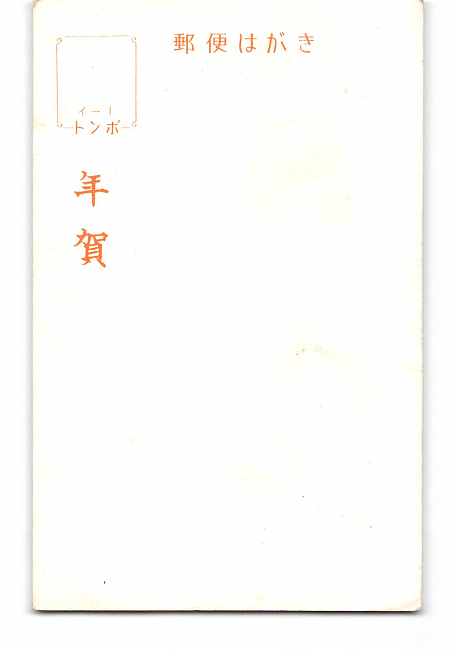 郵便はがき
イーI
トンボ
年賀